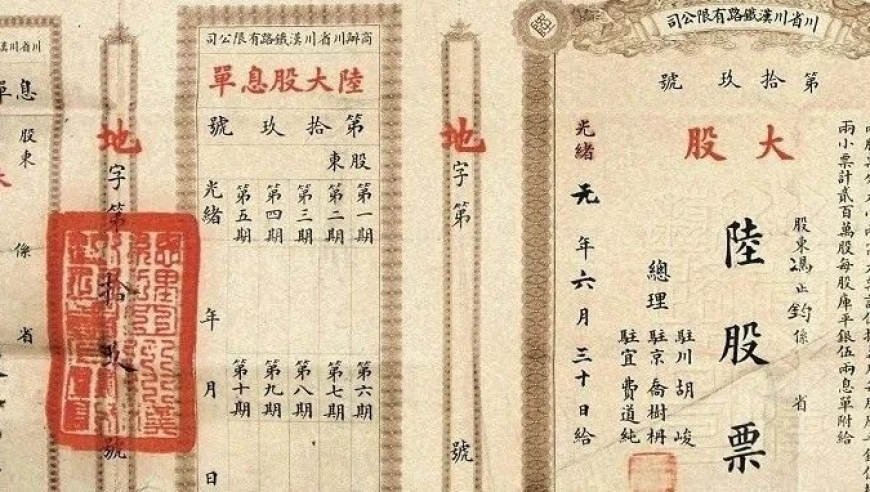 川省川漢鐵路有限公司
第拾玖號
大股
兩小票計貳百萬股每股庫平銀伍兩息單附給
股東馮止鈞係 省
陸股票
總理
駐川胡峻
駐京喬樹枬
駐宜費道純
光緒元年六月三十日給
地字第 號
商辦川省川漢鐵路有限公司
陸大股息單
第拾玖號
股東
第一期 第六期
第二期 第七期
第三期 第八期
第四期 第九期
第五期 第十期
光緒 年 月 日
地字第拾玖號
息單
股東 係 省